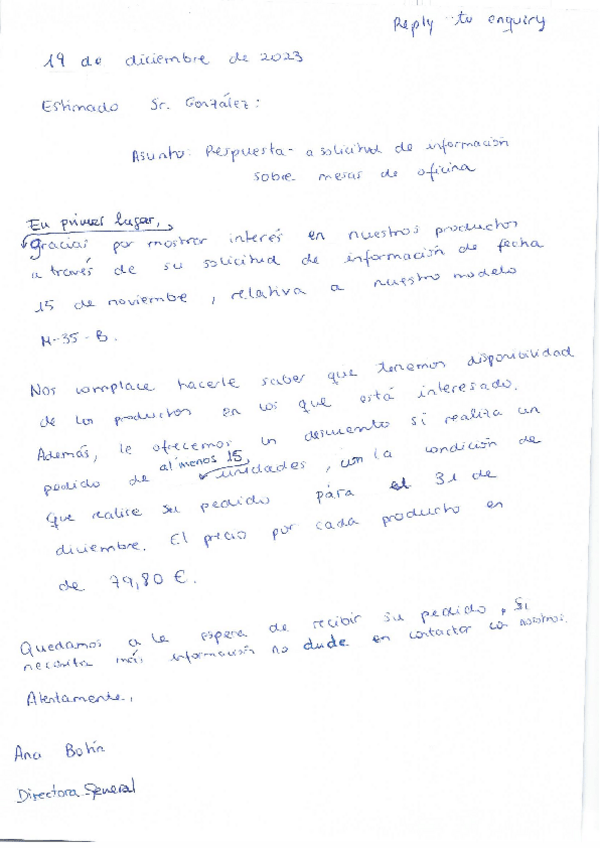 Reply to enquiry
19 de diciembre de 2023
Estimado Sr. González:
Asunto: Respuesta a solicitud de información
sobre mesas de oficina
En primer lugar,
gracias por mostrar interés en nuestros productos
a través de su solicitud de información de fecha
15 de noviembre, relativa a nuestro modelo
M-35-B.
Nos complace hacerle saber que tenemos disponibilidad
de los productos en los que está interesado.
Además, le ofrecemos un descuento si realiza un
pedido de al menos 15 unidades, con la condición de
que realice su pedido para el 31 de
diciembre. El precio por cada producto es
de 79,80 €.
Quedamos a la espera de recibir su pedido, si
necesita más información no dude en contactar con nosotros.
Atentamente,
Ana Botín
Directora General